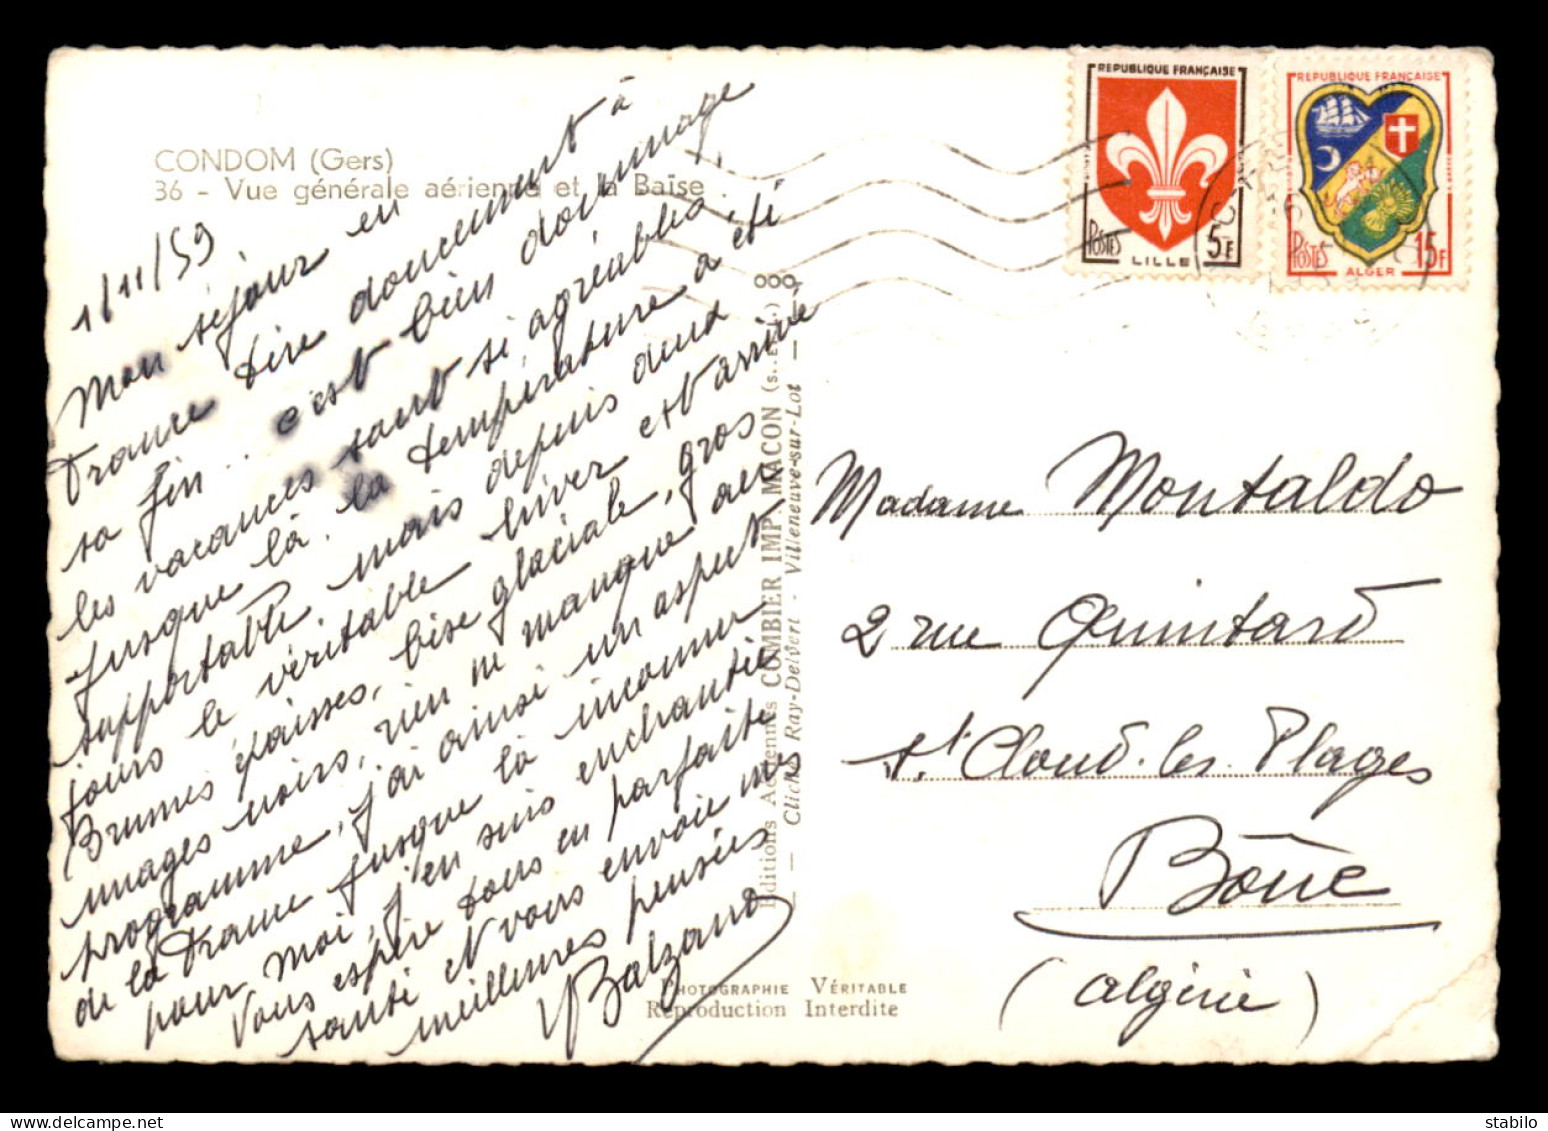 CONDOM (Gers)
36 - Vue générale aérienne et la Baïse
1/11/59
Mon séjour en
France tire doucement à
sa fin... c'est bien dommage
les vacances sont si agréables.
Jusque là, la température a été
supportable, mais depuis deux
jours le véritable hiver est arrivé
Brumes épaisses, bise glaciale, gros
nuages noirs, rien ne manque au
programme, j'ai ainsi un aspect
de la France jusque là inconnu
pour moi, j'en suis enchantée
Vous espère tous en parfaite
santé et vous envoie mes
meilleures pensées
Balzano
Editions Aériennes COMBIER IMP. MACON
Clichés Ray-Delvert - Villeneuve-sur-Lot
PHOTOGRAPHIE VÉRITABLE
Reproduction Interdite
REPUBLIQUE FRANÇAISE
POSTES 5F
LILLE
REPUBLIQUE FRANÇAISE
POSTES 15F
ALGER
Madame Montaldo
2 rue Quintard
St Cloud. les Plages
Bône
(Algérie)
stabilo - delcampe.net